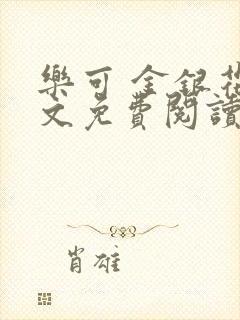 樂可 金銀花
文免費閱讀
肖雄